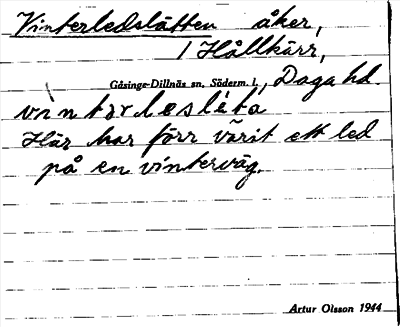 Vinterledslätten åker,
1 Hållkärr,
Gåsinge-Dillnäs sn, Söderm. l., Daga hd
Här har förr varit ett led
på en vinterväg.
Artur Olsson 1944